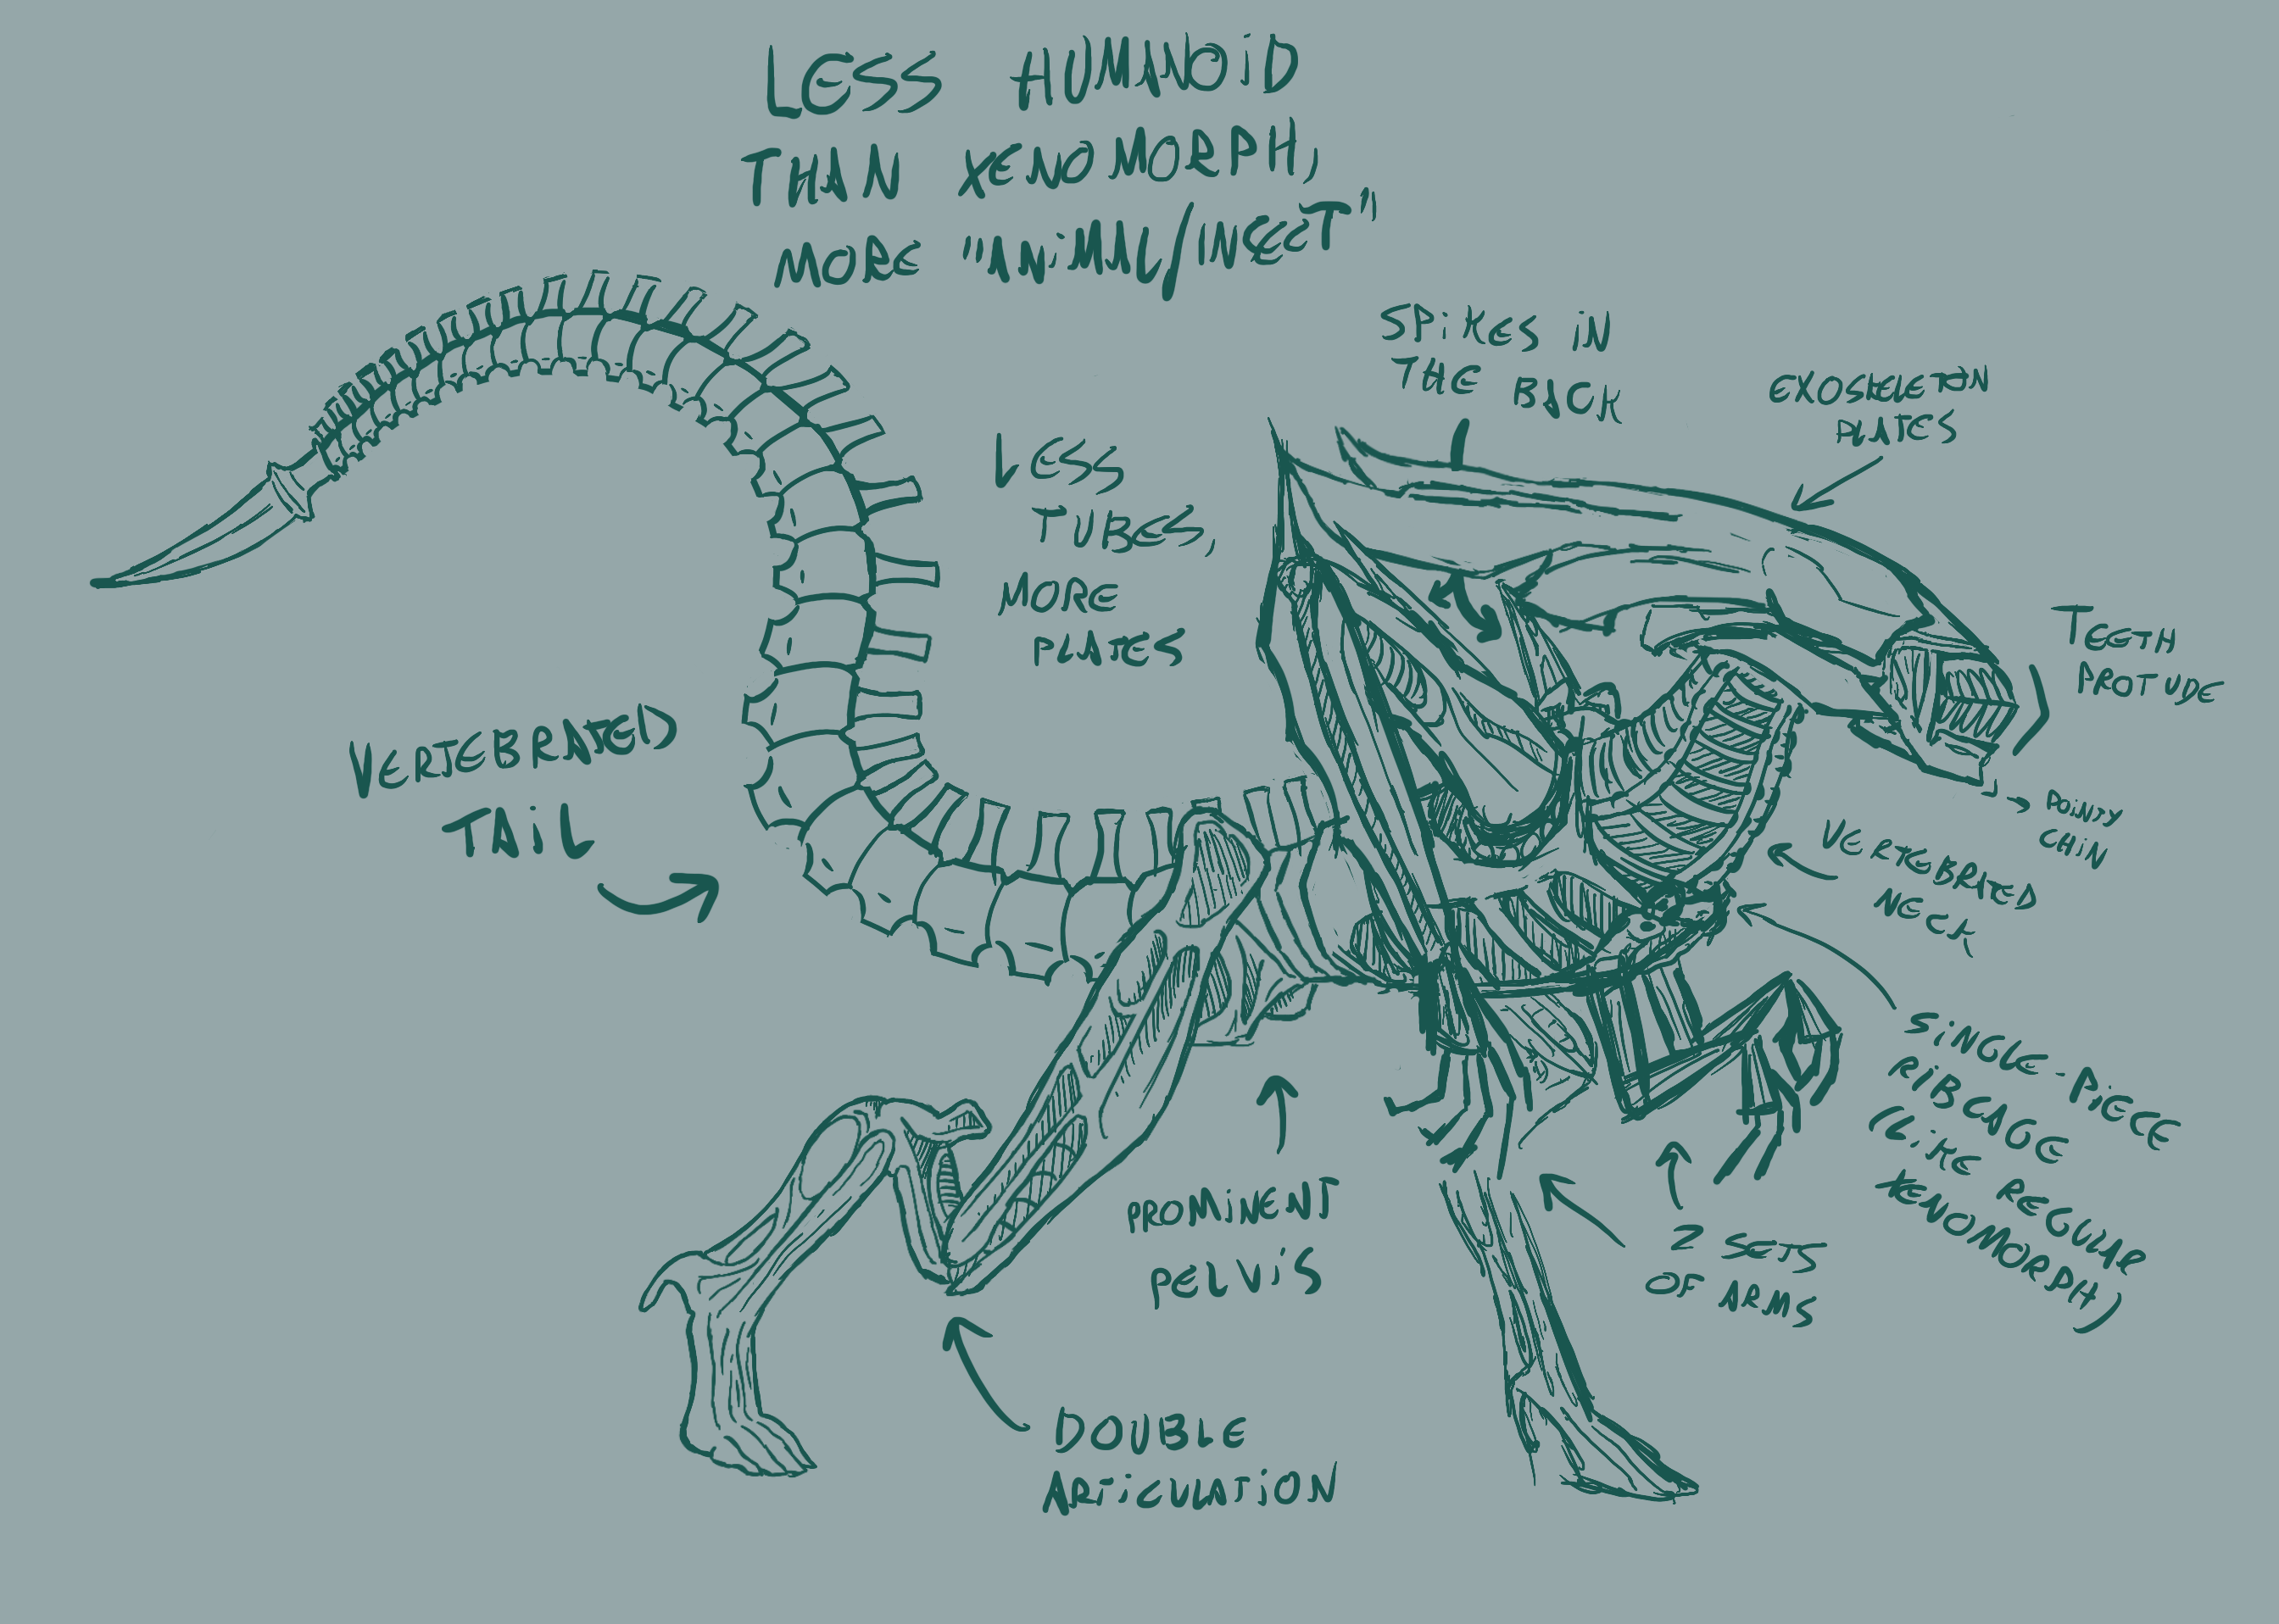 LESS HUMANOID
THAN XENOMORPH,
MORE "ANiMAL/INSECT"
SPiKES iN
THE BACK
EXOSKELETON
PLATES
LESS
TUBES,
MORE
PLATES
TEETH
PROTUDE
POiNTY
CHiN
VERTEBRATED
TAiL
VERTEBRATED
NECK
SiNGLE-PiECE
RiBCAGE
(LiKE REGULAR
XENOMORPH)
PROMiNENT
PELViS
2 SETS
OF ARMS
DOUBLE
ARTiCULATiON